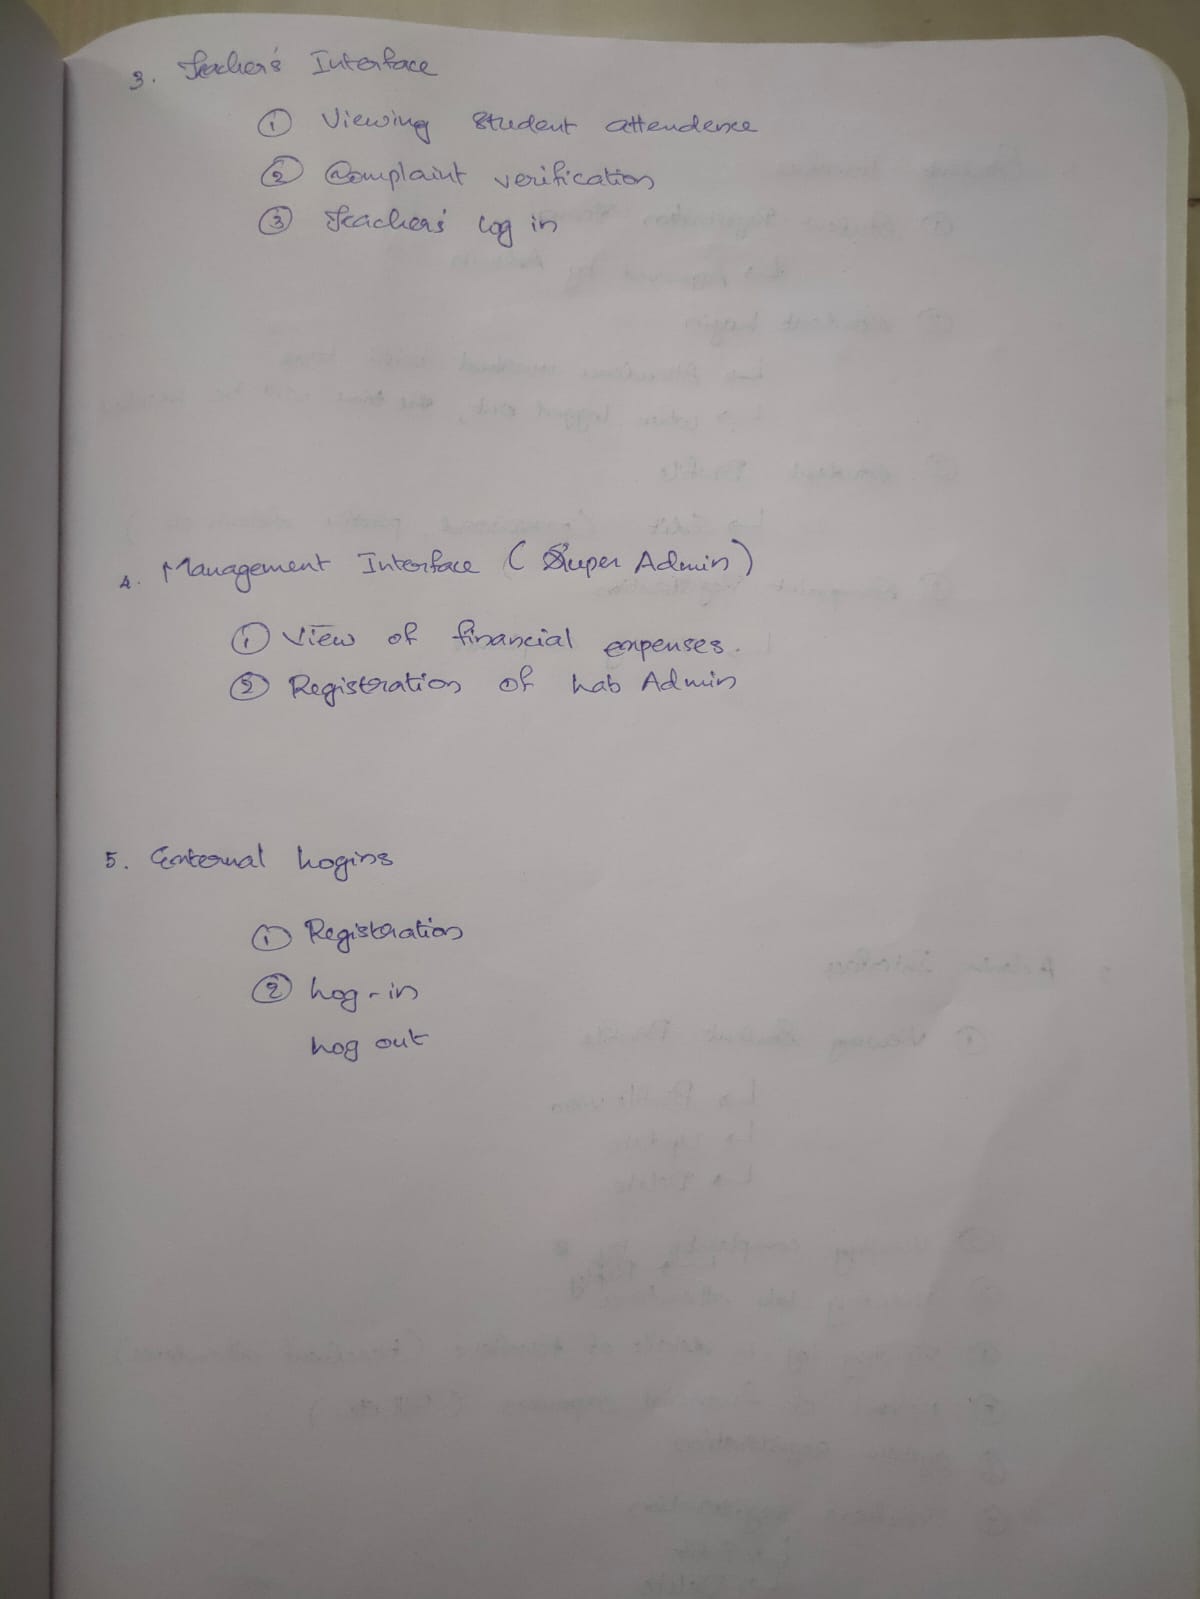 3. Teacher's Interface
① Viewing student attendence
② Complaint verification
③ Teachers' Log in
4. Management Interface (Super Admin)
① View of financial expenses.
② Registration of Lab Admin
5. External Logins
① Registration
② Log-in
Log out